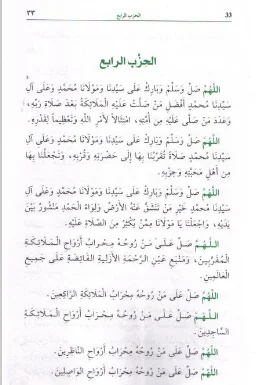 ٣٣ الحزب الرابع 33
الحزْب الرابع
اللَّهُمَّ صَلِّ وَسَلِّمْ وَبَارِكْ عَلَى سَيِّدِنَا وَمَوْلَانَا مُحَمَّدٍ وَعَلَى آلِ
سَيِّدِنَا مُحَمَّدٍ أَفْضَلَ مَنْ صَلَّتْ عَلَيْهِ الْمَلَائِكَةُ بَعْدَ صَلَاةِ رَبِّهِ،
وَعَدَدَ مَنْ صَلَّى عَلَيْهِ مِنْ أُمَّتِهِ، امْتِثَالًا لِأَمْرِ اللَّهِ وَتَعْظِيماً لِقَدْرِهِ.
اللَّهُمَّ صَلِّ وَسَلِّمْ وَبَارِكْ عَلَى سَيِّدِنَا وَمَوْلَانَا مُحَمَّدٍ وَعَلَى آلِ
سَيِّدِنَا مُحَمَّدٍ صَلَاةً تُقَرِّبُنَا بِهَا إِلَى حَضْرَتِهِ وَقُرْبِهِ، وَتَجْعَلُنَا بِهَا
مِنْ أَهْلِ مَحَبَّتِهِ وَحِزْبِهِ.
اللَّهُمَّ صَلِّ وَسَلِّمْ وَبَارِكْ عَلَى سَيِّدِنَا وَمَوْلَانَا مُحَمَّدٍ وَعَلَى آلِ
سَيِّدِنَا مُحَمَّدٍ خَيْرِ مَنْ تَنْشَقُّ عَنْهُ الْأَرْضُ وَلِوَاءُ الْحَمْدِ مَنْشُورٌ بَيْنَ
يَدَيْهِ، وَاجْعَلْنَا يَا مَوْلَانَا مِمَّنْ يُكْثِرُ مِنَ الصَّلَاةِ عَلَيْهِ.
اللَّهُمَّ صَلِّ عَلَى مَنْ رُوحُهُ مِحْرَابُ أَرْوَاحِ الْمَلَائِكَةِ
الْمُقَرَّبِينَ، وَمَنْبَعِ عَيْنِ الرَّحْمَةِ الْأَزَلِيَّةِ الْفَائِضَةِ عَلَى جَمِيعِ
الْعَالَمِينَ.
اللَّهُمَّ صَلِّ عَلَى مَنْ رُوحُهُ مِحْرَابُ الْمَلَائِكَةِ الرَّاكِعِينَ.
اللَّهُمَّ صَلِّ عَلَى مَنْ رُوحُهُ مِحْرَابُ أَرْوَاحِ الْمَلَائِكَةِ
السَّاجِدِينَ.
اللَّهُمَّ صَلِّ عَلَى مَنْ رُوحُهُ مِحْرَابُ أَرْوَاحِ النَّاظِرِينَ.
اللَّهُمَّ صَلِّ عَلَى مَنْ رُوحُهُ مِحْرَابُ أَرْوَاحِ الْوَاصِلِينَ.